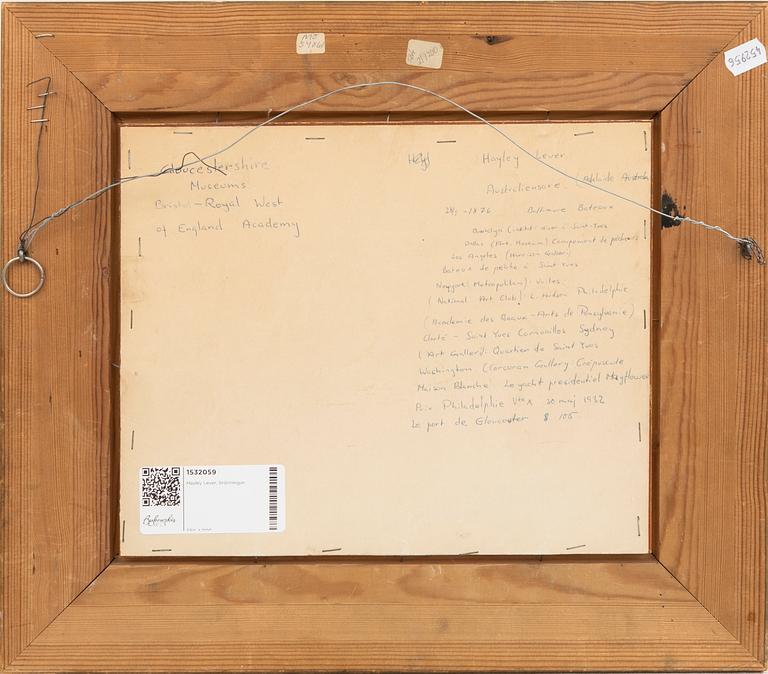 452956
Gloucestershire
Museums
Bristol - Royal West
of England Academy
Hayley Lever
Australiensare. (Adelaide Austral
1876 Baltimore Bateaux
Brooklyn Saint-Yves
Dallas (Art. Museum) Campement de pêcheurs
Los Angeles (Harrison Gallery)
Bateux de pêche à Saint Yves
Newyork: Metropolitan): Voiles.
(National Art Club): L'Hudson Philadelphie
(Academie des Beaux-Arts de Pensylvanie)
Clarté - Saint Yves Cornouilles Sydney
(Art Gallery): Quartier de Saint Yves
Washington. (Corcoran Gallery: Crépuscule
Maison Blanche Le yacht presidentiel Mayflower
Prix Philadelphie Vte X 20 maj 1932
Le port de Gloucester $ 105
1532059
Hayley Lever, snörningar.
Bukowskis